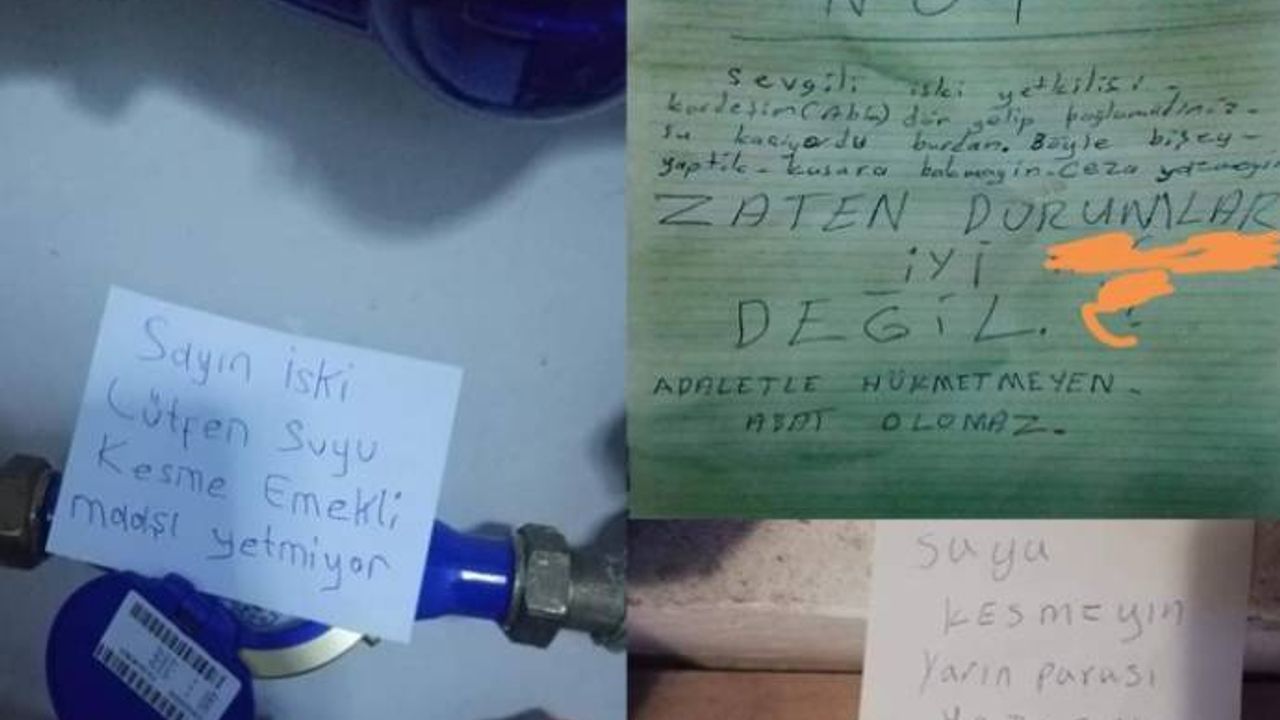 Sayın iski
Lütfen suyu
Kesme Emekli
maaşı yetmiyor
NOT
Sevgili iski yetkilisi -
kardeşim (Abla) dün gelip bağlamadınız -
su kaçıyordu burdan. Böyle bişey -
yaptık - kusara bakmayın - Ceza
ZATEN DURUMLAR
İYİ
DEĞİL.
ADALETLE HÜKMETMEYEN -
ABAT OLOMAZ.
suyu
KESMEYİN
Yarın parası